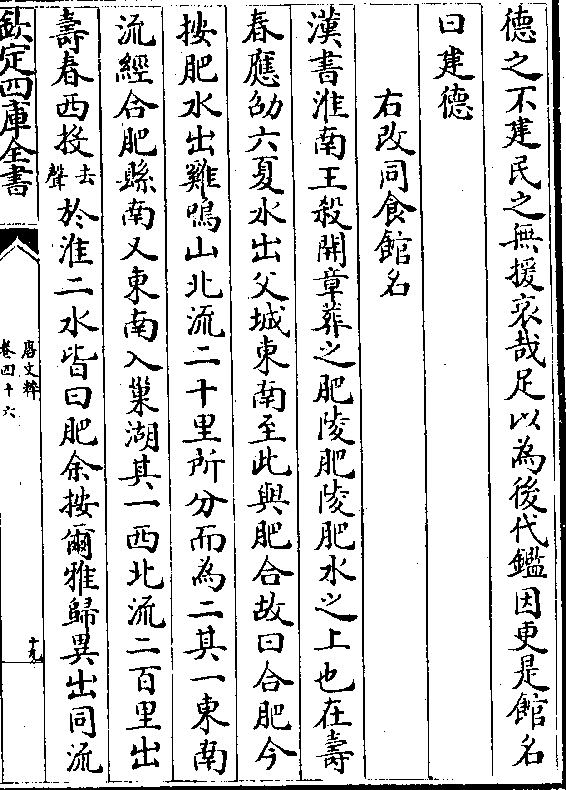 德之不建民之無援哀哉足以為後代鑑因更是館名
曰建德
右改同食館名
漢書淮南王殺開章葬之肥陵肥陵肥水之上也在壽
春應劭六夏水出父城東南至此與肥合故曰合肥今
按肥水出雞鳴山北流二十里所分而為二其一東南
流經合肥縣南又東南入巢湖其一西北流二百里出
壽春西投去聲於淮二水皆曰肥余按爾雅歸異出同流
欽定四庫全書
唐文粹
卷四十六
十九